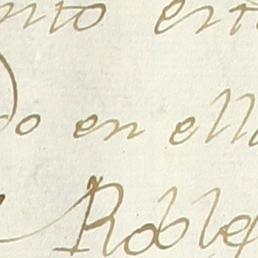 nto en
do en ella
Robles